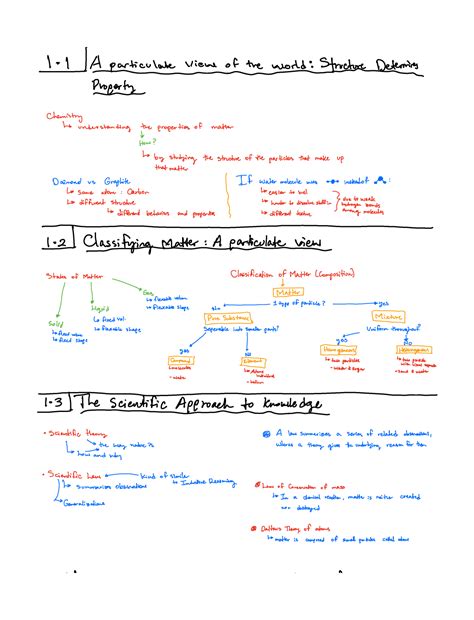 1.1 A particulate view of the world: Structure Determines
Property
Chemistry
↳ understanding the properties of matter
How?
↳ by studying the structure of the particles that make up
that matter
Daimond vs Graphite
↳ same atom: Carbon
↳ different structure
↳ different behaviors and properties
If water molecule were instead of :
↳ easier to boil
↳ harder to dissolve stuff in
↳ different texture
due to weak
hydrogen bonds
among molecules
1.2 Classifying Matter: A particulate view
States of Matter
Gas
↳ flexible volume
↳ flexible shape
Liquid
↳ fixed Vol.
↳ flexible shape
Solid
↳ fixed volume
↳ fixed shape
Classification of Matter (Composition)
Matter
1 type of particle?
No
yes
Pure Substance
Seperable into simpler parts?
yes
No
Compound
- water
Element
- helium
Mixture
Uniform throughout?
yes
No
Homogeneous
↳ two particles
- water & sugar
Heterogeneous
↳ two particle
- sand & water
1.3 The Scientific Approach to Knowledge
• Scientific theory
↳ the way nature is
↳ how and why
• Scientific Law
kind of similar
to Inductive Reasoning
↳ summarizes observations
↳ Generalizations
A law summarizes a series of related observations,
whereas a theory gives the underlying reason for them
Law of Conservation of mass
↳ In a chemical reaction, matter is neither created
nor destroyed
Daltons Theory of atoms
↳ matter is composed of small particles called atoms